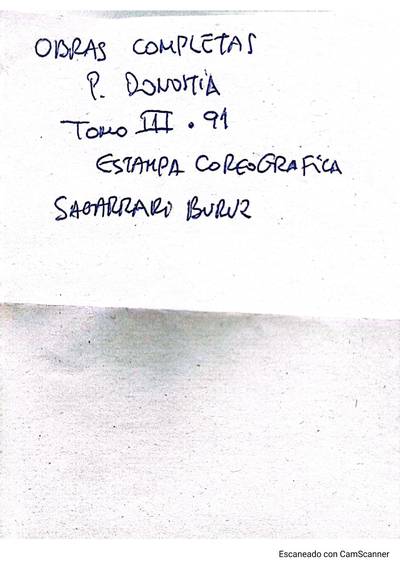 OBRAS COMPLETAS
P. DONOSTIA
TOMO III . 91
ESTAMPA COREOGRAFICA
SAGARRARO BURUZ
Escaneado con CamScanner